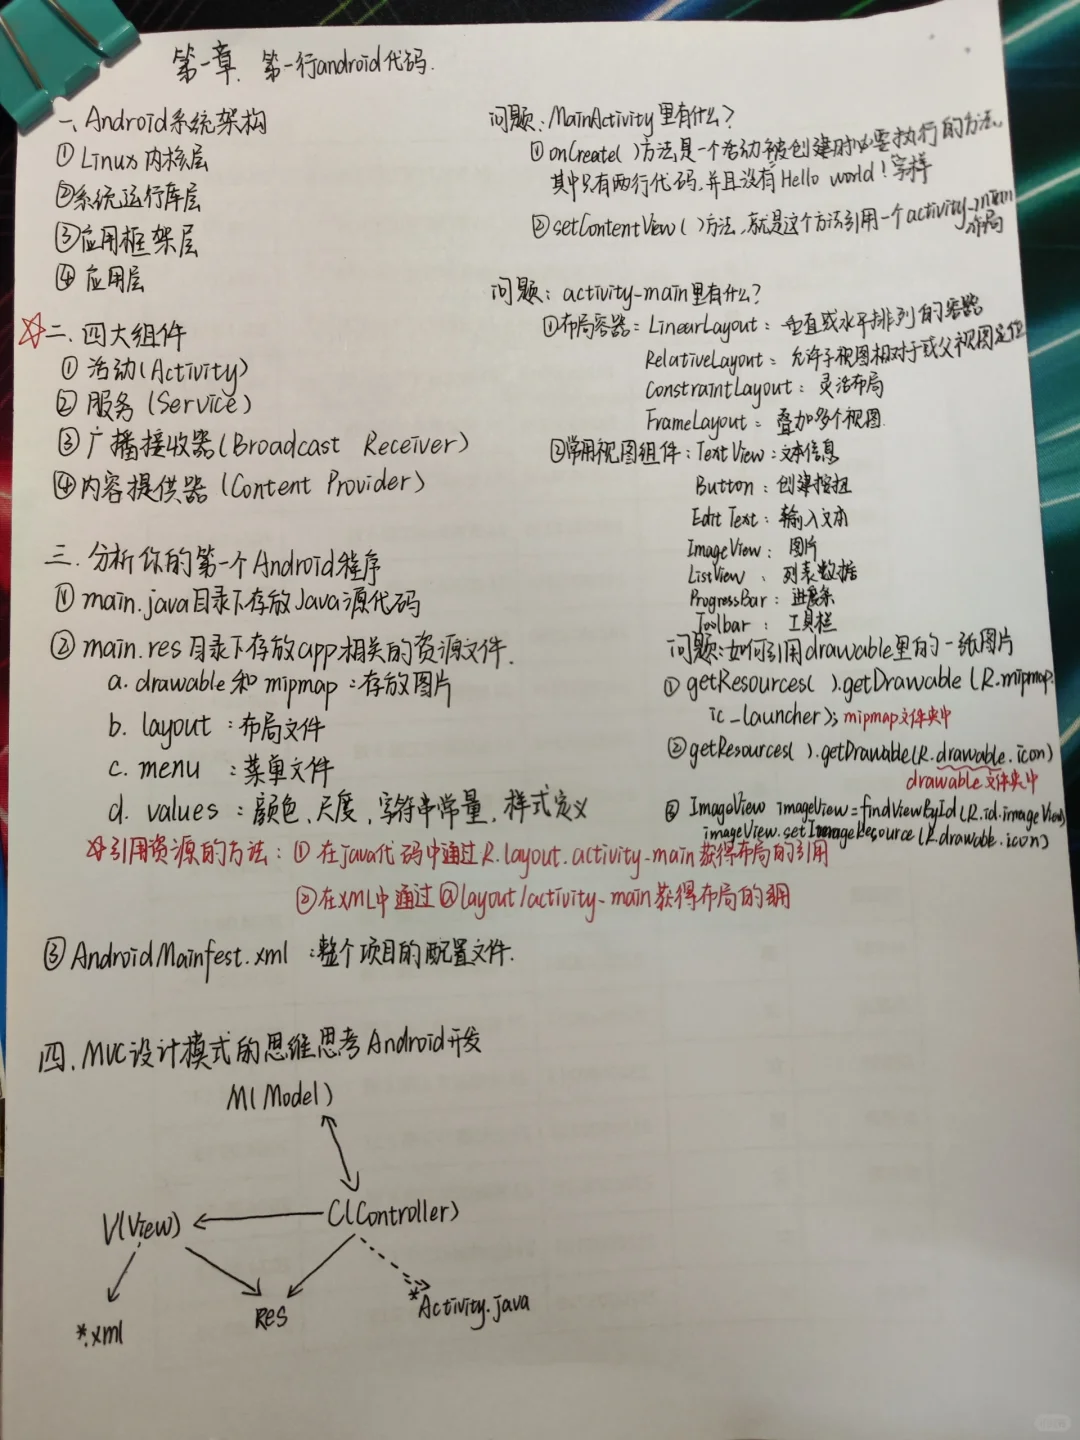 第一章. 第一行android代码.
一、Android系统架构
①Linux内核层
②系统运行库层
③应用框架层
④应用层
☆二.四大组件
①活动(Activity)
②服务(Service)
③广播接收器(Broadcast Receiver)
④内容提供器(Content Provider)
三.分析你的第一个Android程序
①main.java目录下存放Java源代码
②main.res目录下存放app相关的资源文件.
a. drawable和mipmap:存放图片
b. layout:布局文件
c. menu:菜单文件
d. values:颜色、尺度,字符串常量,样式定义
☆引用资源的方法:①在java代码中通过R.layout.activity-main获得布局的引用
②在XML中通过@layout/activity-main获得布局的引用
③AndroidMainfest.xml:整个项目的配置文件.
四.MVC设计模式的思维思考Android开发
M(Model)
V(View) C(Controller)
*.xml res *Activity.java
问题:MainActivity里有什么?
①onCreate()方法是一个活动被创建时必要执行的方法,
其中只有两行代码,并且没有Hello world!字样
②setContentView()方法,就是这个方法引用一个activity-main
布局
问题:activity-main里有什么?
①布局容器:LinearLayout:垂直或水平排列的容器
RelativeLayout:允许子视图相对于或父视图定位
ConstraintLayout:灵活布局
FrameLayout:叠加多个视图.
②常用视图组件:TextView:文本信息
Button:创建按钮
Edit Text:输入文本
ImageView:图片
ListView:列表数据
ProgressBar:进度条
Toolbar:工具栏
问题:如何引用drawable里的一张图片
①getResources().getDrawable(R.mipmap.
ic_launcher); mipmap文件夹中
②getResources().getDrawable(R.drawable.icon)
drawable文件夹中
③ImageView imageView=findViewById(R.id.imageView)
imageView.setImageResource(R.drawable.icon)